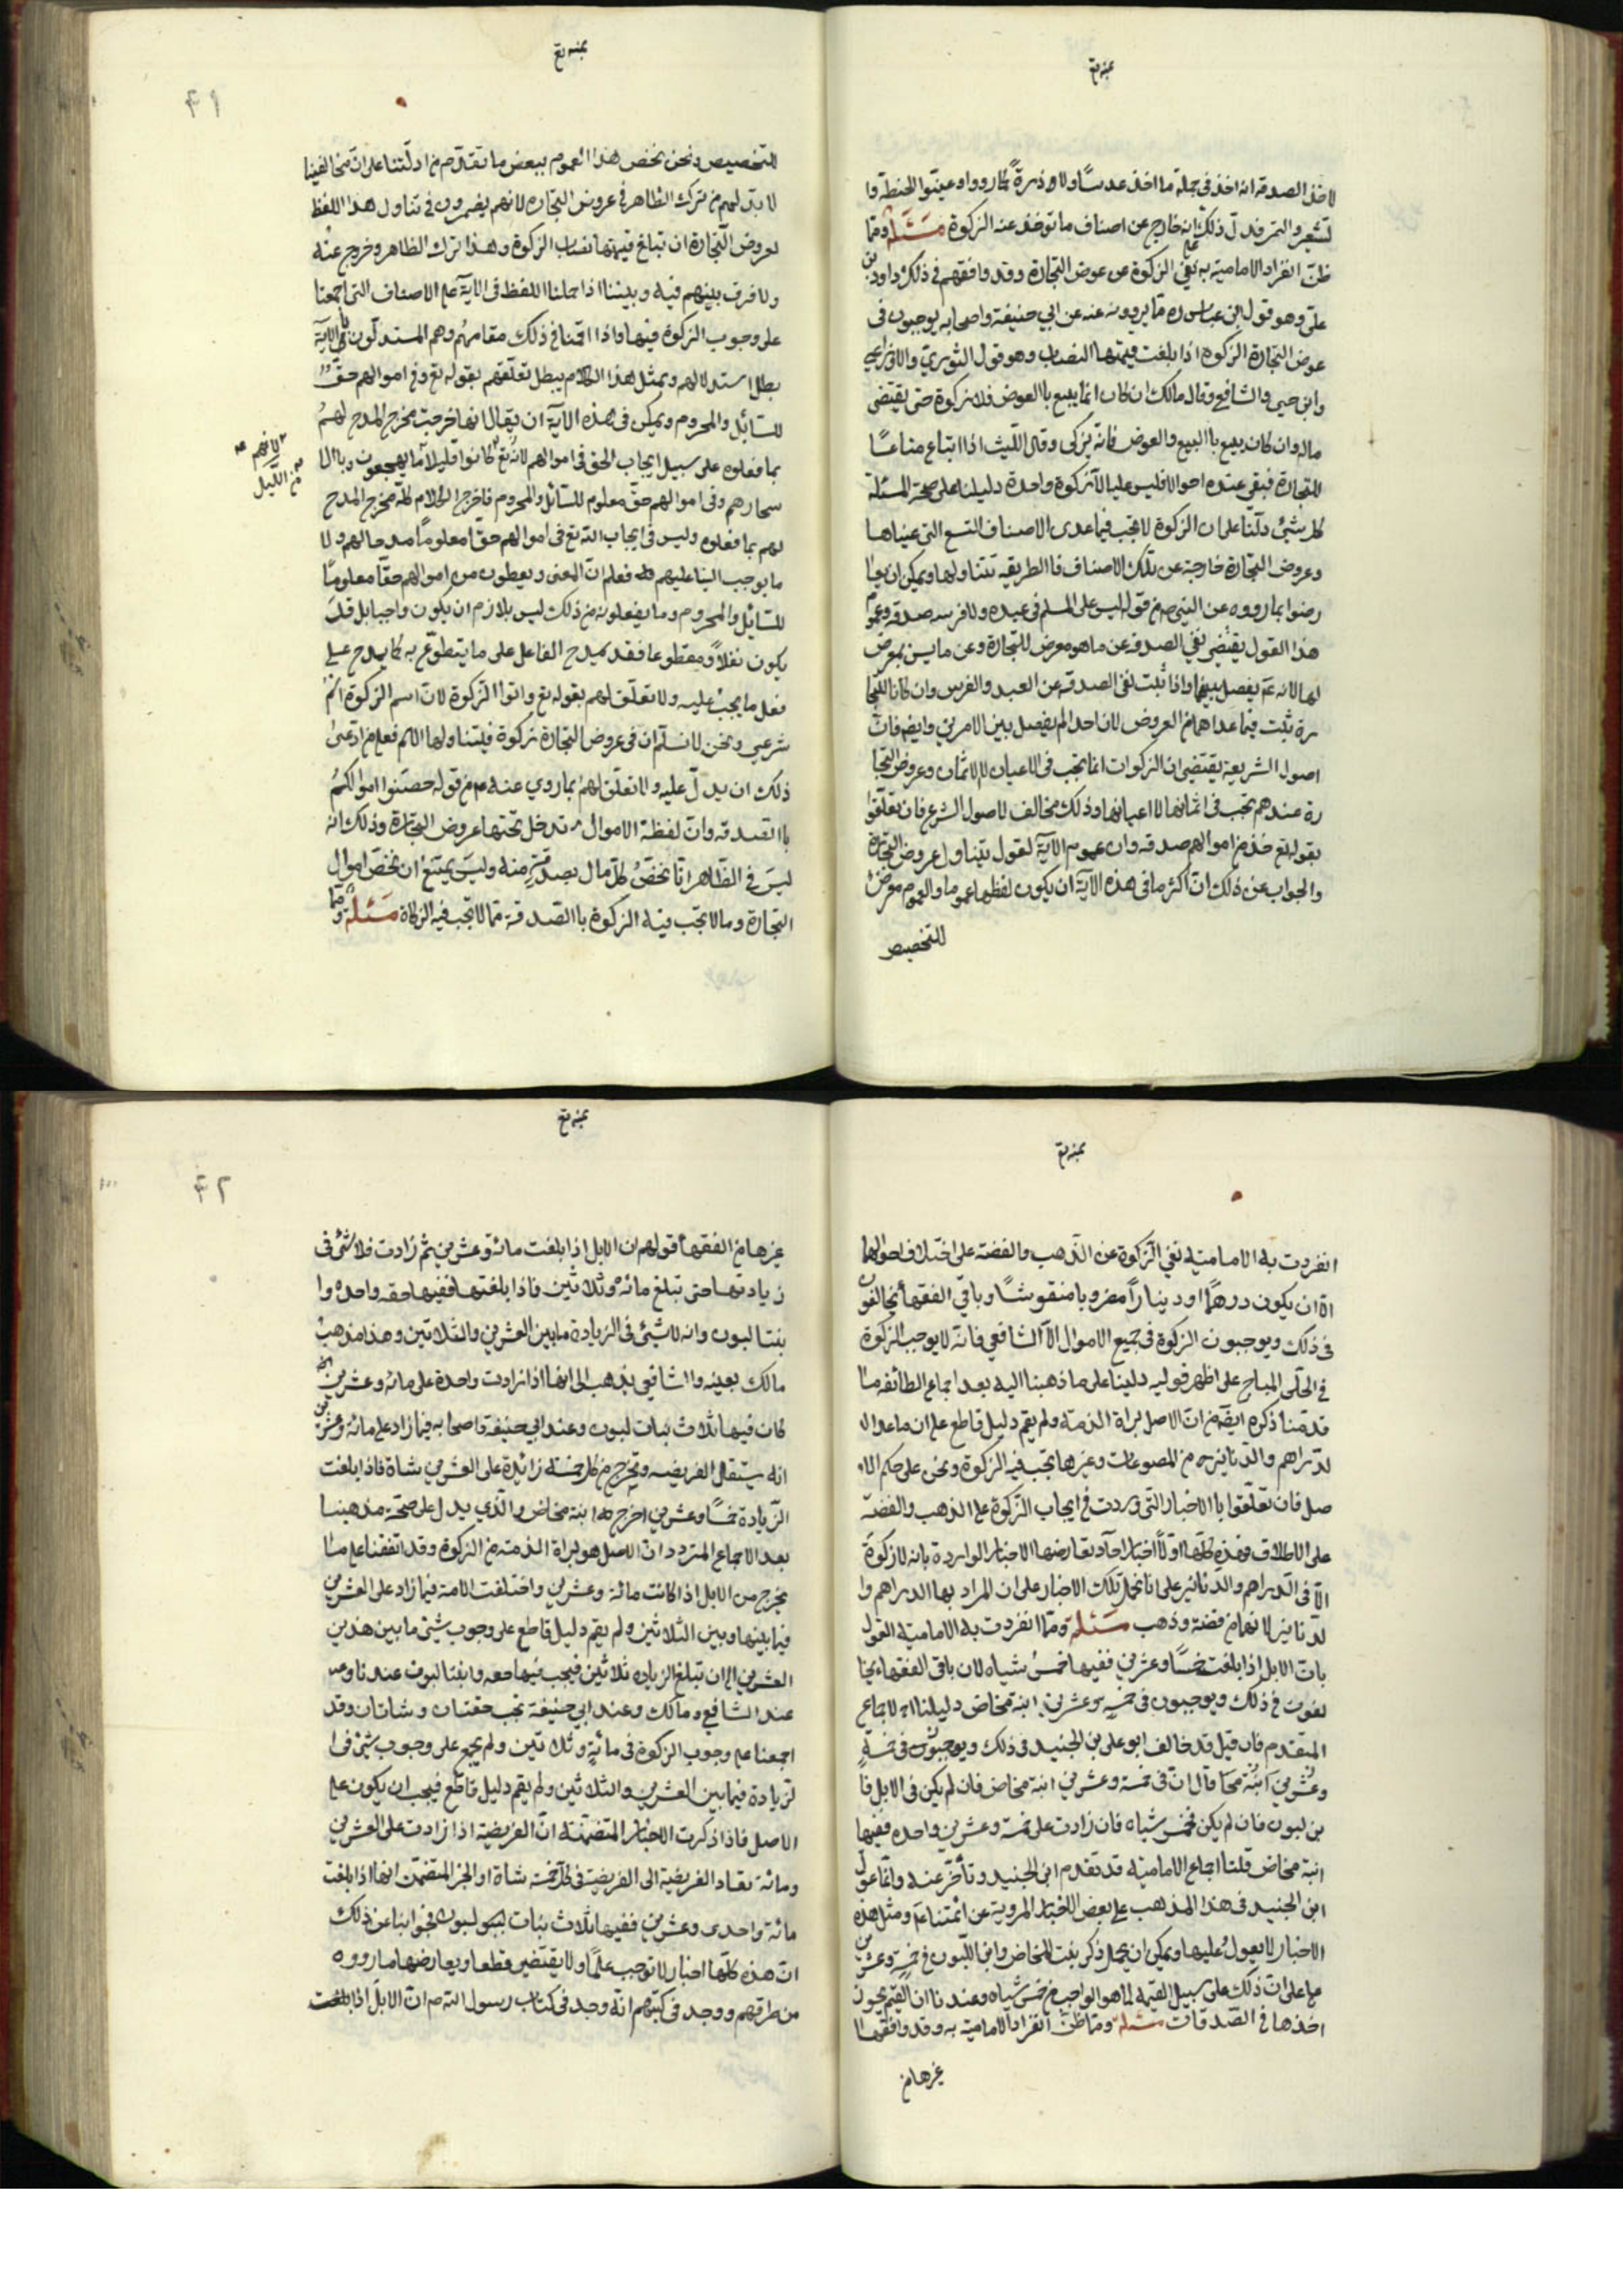 لاخذ الصدقه انه اخذ فی جملة ما اخذ عدسًا ولا ذرةً کما رووا وعینوا الحنطة وا
لشعیر والتمر فدلّ ذلک انه خارج عن اصناف ما توخذ عنه الزکوة مسئلة ومما
ظنّ انفراد الامامیة به نفی الزکوة عن عوض التجارة وقد وافقهم فی ذلک داود بن
علیّ وهو قول ابن عباس ره مما یروونه عنه عن ابی حنیفة واصحابه یوجبون فی
عوض التجارة الزکوة اذا بلغت قیمتها النصاب وهو قول الثوری والاوزاعی
وابن حی والشافعی وقال مالک ان کان انما یبیع باالعوض فلا زکوة حتی یقتضی
ماله وان کان یبیع باالبیع والعوض فانه یزکی وقال اللّیث اذا ابتاع متاعًا
للتجارة فبقی عنده احوالا فلیس علیه الا زکوة واحدة دلیلنا علی صحة المسئلة
کل شیئ دلّنا علی ان الزکوة لا تجب فیما عدی الاصناف التسع التی عیناها
وعروض التجارة خارجة عن تلک الاصناف فاالطریقه تتناولها ویمکن ان یعا
رضوا بما رووه عن النبی ص من قوله لیس علی المسلم فی عبده ولا فرسه صدقه وعموم
هذا القول یقتضی نفی الصدقه عن ما هو معرض للتجارة وعن ما لیس بمعرض
لها لانه عم یفصل بینهما واذا ثبت نفی الصدقه عن العبد والفرس وان کانا للتجا
رة ثبت فیما عداهما من العروض لان احدا لم یفصل بین الامرین وایضه فانّ
اصول الشریعة یقتضی ان الزکوات انما یجب فی الاعیان لا الاثمان وعروض التجا
رة عندهم تجب فی اثمانها لا اعیانها وذلک مخالف لاصول الشرع فان تعلقوا
بقوله تع خذ من اموالهم صدقه وان عموم الآیة لقول یتناول عروض التجارة
والجواب عن ذلک انّ اکثر ما فی هذه الآیة ان یکون لفظها عموما والعموم معرض
للتخصیص
۴۱
للتخصیص ونحن نخص هذا العموم ببعض ما تقدّم من ادلّتنا علی انّ مخالفینا
لا بدّ لهم من ترک الظاهر فی عروض التجارة لانهم یضمرون فی تناول هذا اللفظ
لعروض التجارة ان تبلغ قیمتها نصاب الزکوة وهذا ترک الظاهر وخروج عنه
ولا فرق بینهم فیه وبیننا اذا حملنا اللفظ فی الآیة علی الاصناف التی اجمعنا
علی وجوب الزکوة فیها واذا اقمنا فی ذلک مقامهم وهم المستدلّون بالآیة
بطل استدلالهم وبمثل هذا الکلام یبطل تعلقهم بقوله تع وفی اموالهم حقّ
للسائل والمحروم ویمکن فی هذه الآیة ان یقال انها خرجت مخرج المدح لهم
بما فعلوه علی سبیل ایجاب الحق فی اموالهم لانه تع کانوا قلیلا ما یهجعون وباالا
لانهم
من اللّیل
سحارهم وفی اموالهم حقّ معلوم للسائل والمحروم فاخرج الکلام کله مخرج المدح
لهم بما فعلوه ولیس فی ایجاب الله تع فی اموالهم حقّا معلومًا مدحا لهم ولا
ما یوجب الثنا علیهم فعلم انّ المعنی ویعطون من اموالهم حقّا معلومًا
للسّائل والمحروم وما یفعلونه من ذلک لیس بلازم ان یکون واجبا بل قد
یکون نفلًا ومتطوعا فقد یمدح الفاعل علی ما یتطوّع به کما یمدح علی
فعل ما یجب علیه ولا تعلّق لهم بقوله تع واتوا الزّکوة لانّ اسم الزکوة اسم
شرعی ونحن لا نسلّم ان فی عروض التجارة زکوة فیتناولها الاسم فعلی من ادعی
ذلک ان یدلّ علیه ولا تعلّق لهم بما روی عنه عم من قوله حصّنوا اموالکم
باالصدقه وانّ لفظة الاموال تدخل تحتها عروض التجارة وذلک انه
لیس فی الظاهر انا نخصّ کل مال بصدقة منه ولیس یمتنع ان نخصّ اموال
التجارة وما لا تجب فیه الزکوة باالصّدقة مما لا تجب فیه الزکاة مسئلة ومما
انفردت به الامامیة نفی الزکوة عن الذّهب والفضة علی اختلاف احوالها
الا ان یکون درهمًا او دینارًا مضروبا منقوشًا وباقی الفقهأ یخالفون
فی ذلک ویوجبون الزکوة فی جمیع الاموال الا الشافعی فانه لا یوجب الزکوة
فی الحلّی المباح علی اظهر قولیه دلیلنا علی ما ذهبنا الیه بعد اجماع الطائفه ما
قدمنا ذکره ایضه من انّ الاصل براة الذمة ولم یقم دلیل قاطع علی ان ما عدا ا
لدّراهم والدّنانیر من المصوغات وغیرها تجب فیه الزکوة ونحن علی حکم الا
صل فان تعلّقوا باالاخبار التی وردت فی ایجاب الزّکوة علی الذهب والفضّة
علی الاطلاق فهذه کلها اولًا اخبار احاد یعارضها الاخبار الواردة بانه لا زکوة
الا فی الدّراهم والدّنانیر علی انا نحمل تلک الاخبار علی ان المراد بها الدراهم وا
لدّنانیر لانهما من فضة وذهب مسئلة ومما انفردت به الامامیة القول
بانّ الابل اذا بلغت خمسًا وعشرین ففیها خمس شیاه لان باقی الفقهاء یخا
لفون فی ذلک ویوجبون فی خمسة وعشرین ابنة مخاض دلیلنا الاجماع
المتقدم فان قیل قد خالف ابو علی بن الجنید فی ذلک ویوجبون فی خمسة
وعشرین ابنة مخا قال انّ فی خمسة وعشرین ابنة مخاض فان لم یکن فی الابل فا
بن لبون فان لم یکن فخمس شیاه فان زادت علی خمسة وعشرین واحده ففیها
ابنة مخاض قلنا اجماع الامامیة قد تقدم ابن الجنید وتأخّر عنه وانّما عوّل
ابن الجنید فی هذا المذهب علی بعض الاخبار المرویة عن ائمتنا عم ومثل هذه
الاخبار لا یعول علیها ویمکن ان یحمل ذکر بنت المخاض وابن اللبون فی خمس وعشرین
علی انّ ذلک علی سبیل القیمة لما هو الواجب من خمس شیاه وعندنا ان القیم یجوز
اخذها فی الصّدقات مسئلة ومما ظنّ انفراد الامامیة به وقد وافقها
غیرها من
۴۲
غیرها من الفقهأ قولهم ان الابل اذا بلغت مائة وعشرین ثم زادت فلا شئ فی
زیادتها حتی تبلغ مائة وثلاثین فاذا بلغتها ففیها حقه واحدة وا
بنتا لبون وانه لا شیئ فی الزیادة ما بین العشرین والثلاثین وهذا مذهب
مالک بعینه واالشافعی یذهب الی انها اذا زادت واحدة علی مائة وعشرین
کان فیها ثلاث بنات لبون وعند ابی حنیفة واصحابه فیما زاد علی مائة وعشرین
انه یستقبل الفریضه ویخرج من کل خمسة زائدة علی العشرین شاة فاذا بلغت
الزّیادة خمسًا وعشرین اخرج ابنة مخاض والّذی یدل علی صحّة مذهبنا
بعد الاجماع المتردد انّ الاصل هو براة الذمة من الزکوة وقد اتفقنا علی ما
یخرج من الابل اذا کانت مائة وعشرین واختلفت الامة فیما زاد علی العشرین
فیما بینها وبین الثلاثین ولم یقم دلیل قاطع علی وجوب شیئ ما بین هذین
العشرین الی ان تبلغ الزیاده ثلاثین فیجب فیها حقه وابنتا لبون عندنا و
عند الشافعی ومالک وعند ابی حنیفة یجب حقتان وشاتان وقد
اجمعنا علی وجوب الزکوة فی مائة وثلاثین ولم یجمع علی وجوب شیئ فی ا
لزیادة فیما بین العشرین والثلاثین ولم یقم دلیل قاطع فیجب ان یکون علی
الاصل فاذا ذکرت الاخبار المتضمّنة انّ الفریضة اذا زادت علی العشرین
ومائة تعاد الفریضة الی الفریضة فی کل خمسة شاة او الخبر المتضمّن انها اذا بلغت
مائة واحدی وعشرین ففیها ثلاث بنات لبون فجوابنا عن ذلک
انّ هذه کلها اخبار لا توجب علمًا ولا یقتضی قطعا ویعارضها ما رووه
من طرقهم ووجد فی کتبهم انّه وجد فی کتاب رسول الله ص انّ الابل اذا بلغت